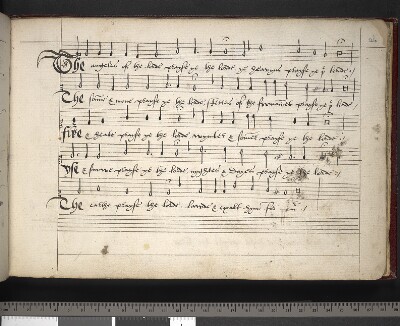 The angeles of the lorde prayse ye the lorde ye heavens prayse ye ye lorde
The sonne & mone prayse ye the lorde sterres of the firmament prayse ye ye lorde
fire & heate prayse ye the lorde wynter & somer prayse ye the lorde
yse & snowe prayse ye the lorde nyghtes & dayes prayse ye the lorde
The erthe prayse the lorde laude & exalt hym for